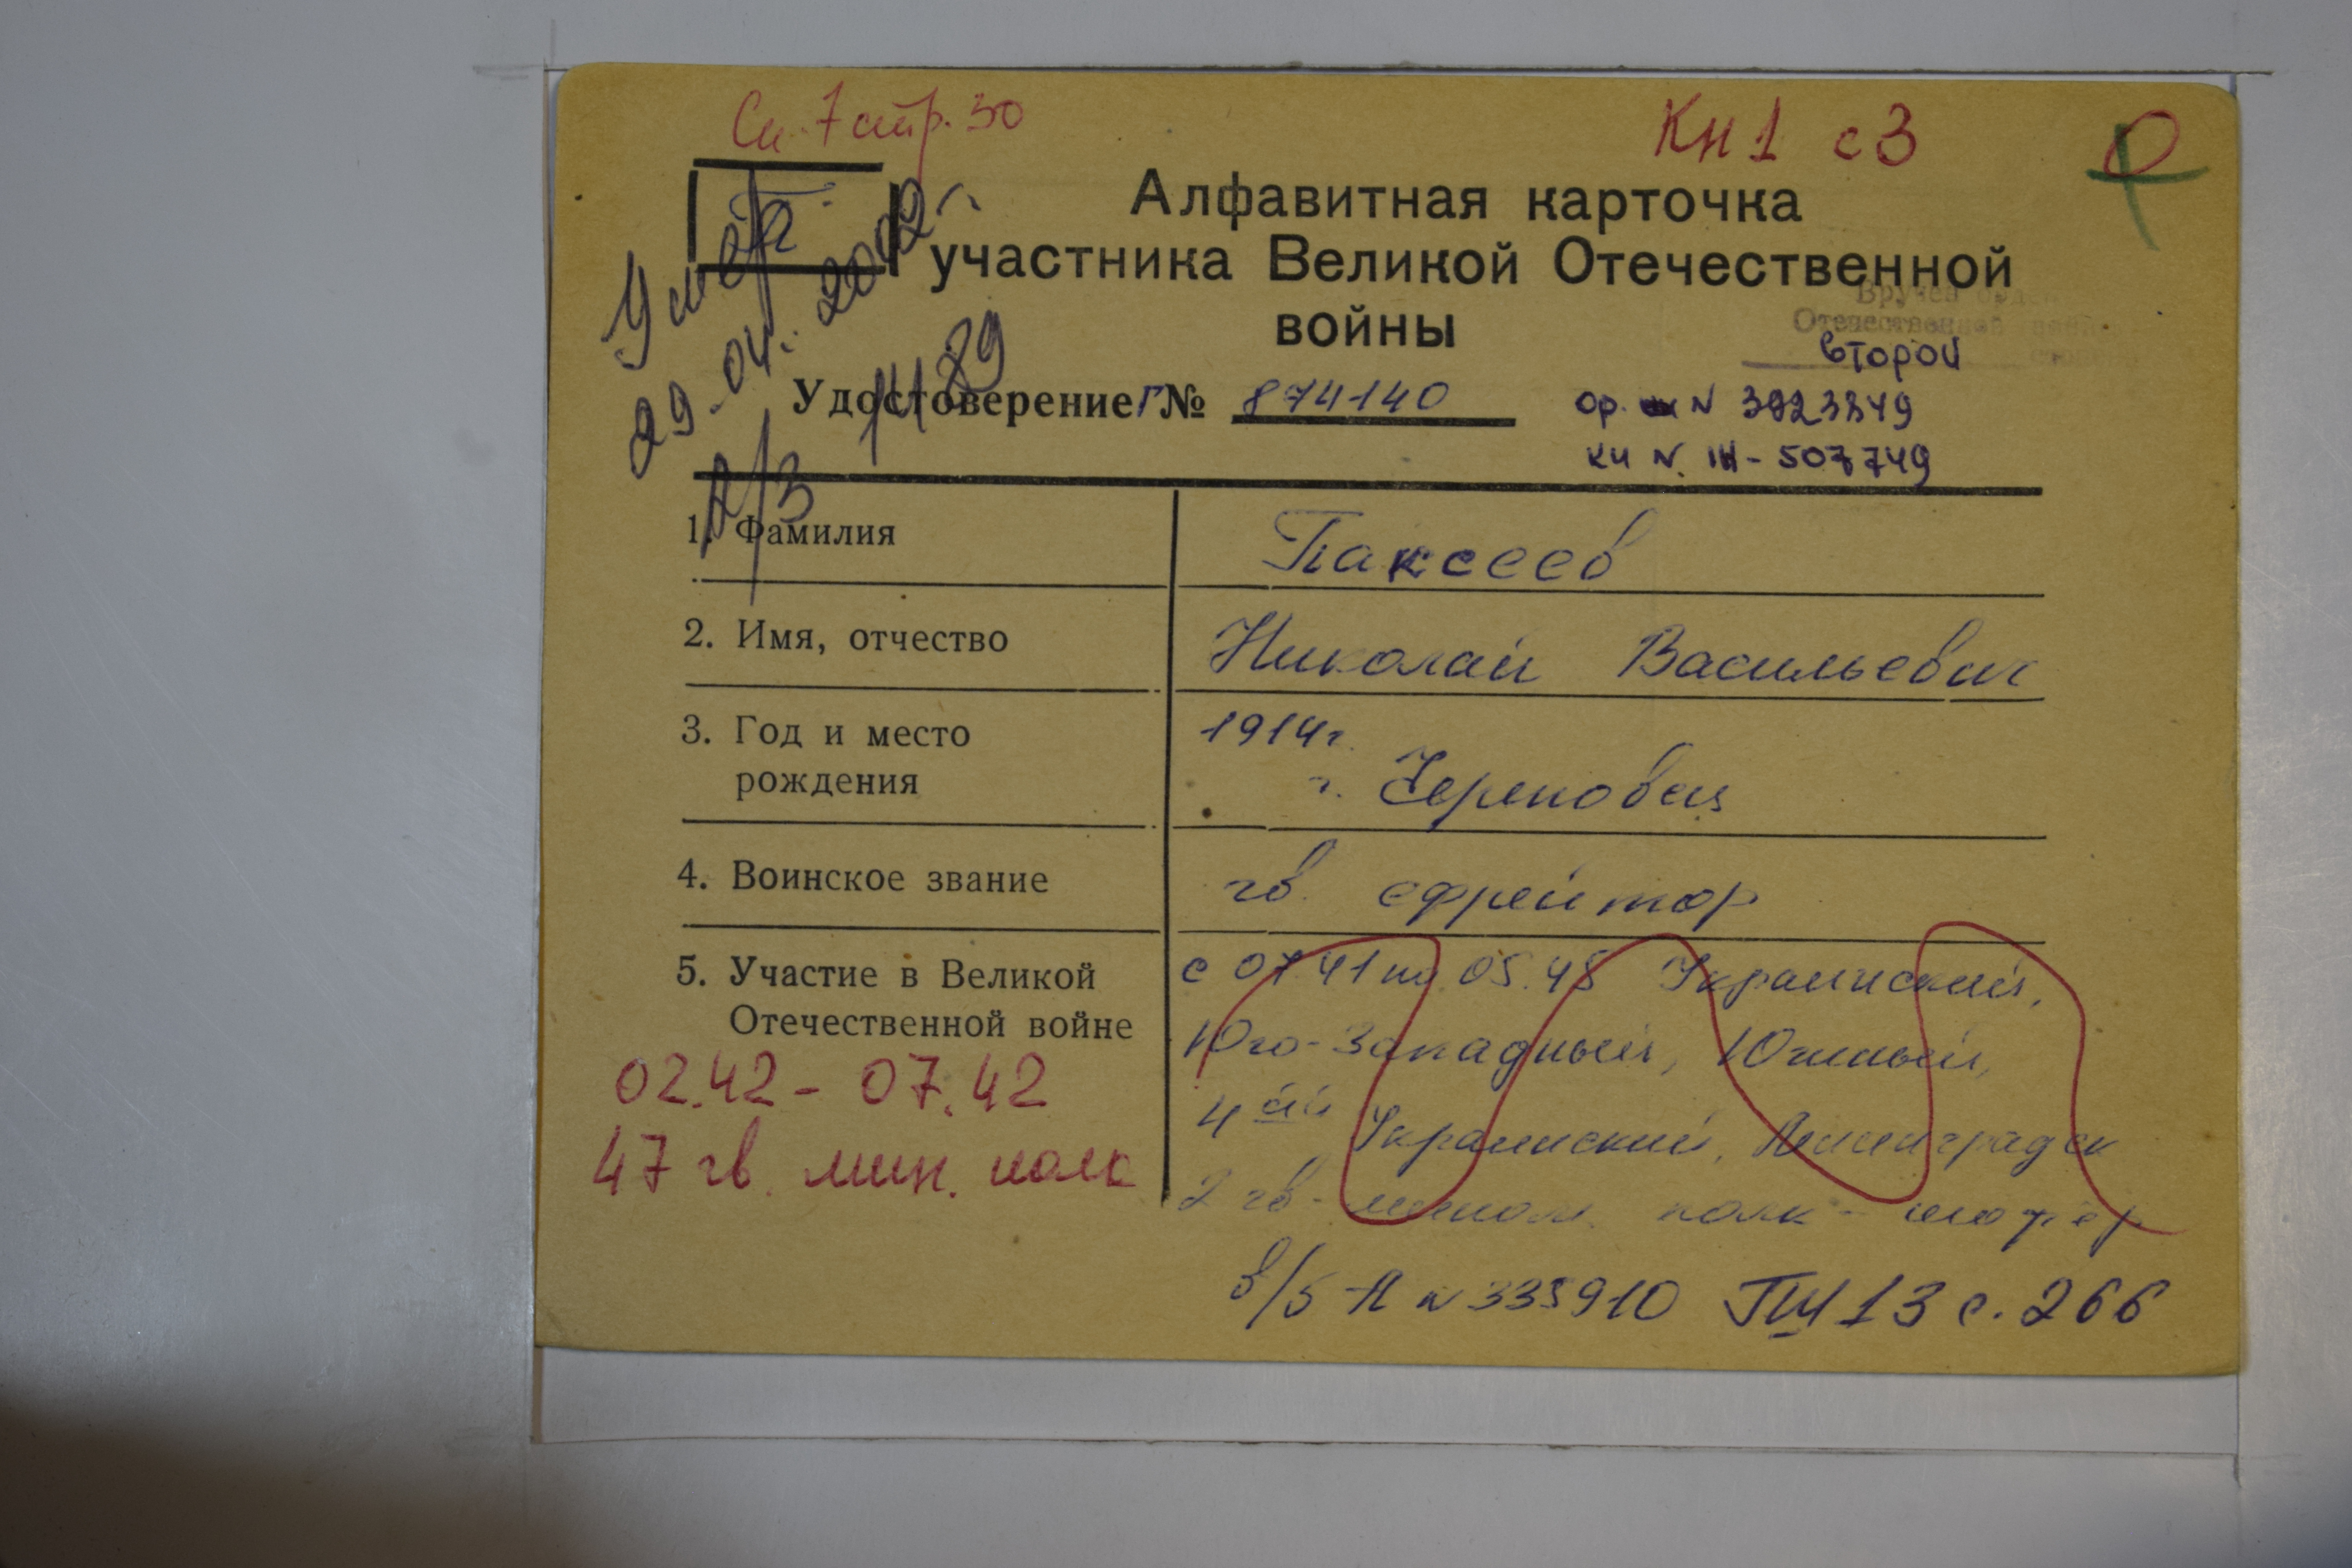 Сп. 7 стр. 30
Кн 1 с 3
П
Умер
29.04.2002 г.
а/з 1489
Алфавитная карточка
участника Великой Отечественной
войны
Вручен орден
Отечественной войны
второй степени
Удостоверение Г № 874140
ор. N 3923849
кн N. 507749
1. Фамилия Паксеев
2. Имя, отчество Николай Васильевич
3. Год и место 1914 г.
рождения г. Череповец
4. Воинское звание гв. ефрейтор
5. Участие в Великой с 07.41 по 05.45 Украинский,
Отечественной войне Юго-Западный, Южный,
02.42 - 07.42
4ый Украинский, Ленинградск
47 гв. мин. полк
2 гв. полк - шофер
в/б - А N 335910 13 с. 266